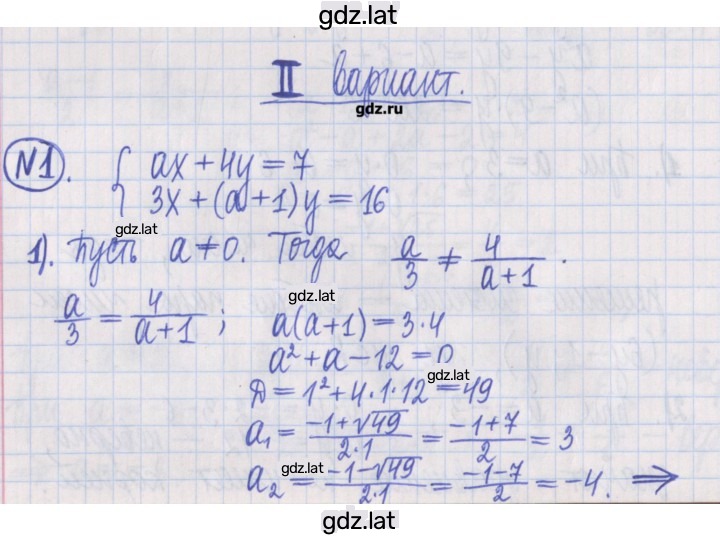 gdz.lat
II вариант.
gdz.ru
№1. { ax + 4y = 7
3x + (a+1)y = 16
gdz.lat
1). Пусть a ≠ 0. Тогда a/3 ≠ 4/(a+1).
gdz.lat
a/3 = 4/(a+1); a(a+1) = 3·4
a² + a − 12 = 0
gdz.lat
Д = 1² + 4·1·12 = 49
a₁ = (−1+√49)/(2·1) = (−1+7)/2 = 3
gdz.lat
a₂ = (−1−√49)/(2·1) = (−1−7)/2 = −4. ⇒
gdz.lat